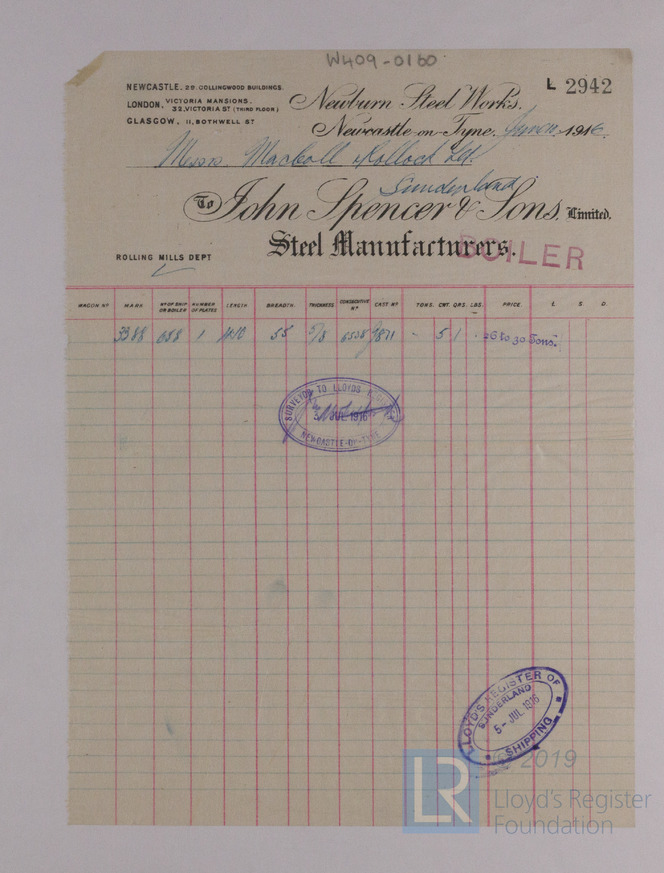 W409-0160
NEWCASTLE. 29 COLLINGWOOD BUILDINGS.
LONDON, VICTORIA MANSIONS, 32, VICTORIA ST (THIRD FLOOR)
GLASGOW, 11, BOTHWELL ST
L 2942
Newburn Steel Works.
Newcastle-on-Tyne, 1916.
Messrs. MacColl & Pollock Ltd.
Sunderland.
To John Spencer & Sons, Limited.
Steel Manufacturers.
BOILER
ROLLING MILLS DEPT
WAGON Nº MARK Nº OF SHIP OR BOILER NUMBER OF PLATES LENGTH BREADTH. THICKNESS CONSECUTIVE Nº CAST Nº TONS. CWT. QRS. LBS. PRICE. £ S. D.
3388 088 1 55 5/8 5 1 26 to 30 Tons.
SURVEYOR TO LLOYDS REGISTER
5 JUL 1916
NEWCASTLE-ON-TYNE
LLOYD'S REGISTER OF SHIPPING
SUNDERLAND
5- JUL 1916
© 2019
LR
Lloyd's Register
Foundation